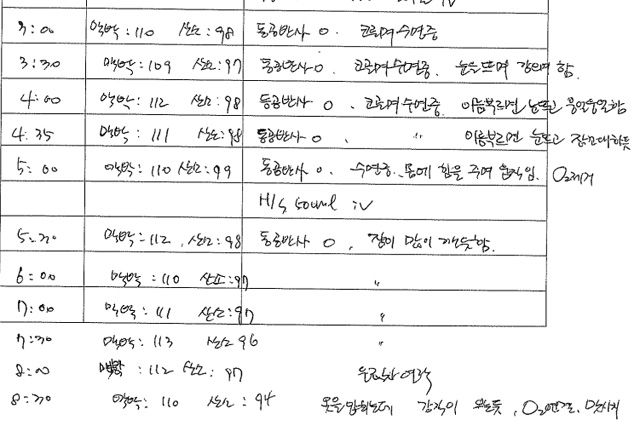 iV
3:00 맥박: 110 산소: 98 동공반사 O. 코골며 수면중
3:30 맥박: 109 산소: 97 동공반사 O 코골며 수면중. 눈을 뜨며 감으며 함.
4:00 맥박: 112 산소: 98 동공반사 O. 코골며 수면중 이름부르면 눈뜨고
4:35 맥박: 111 산소: 98 동공반사 O. " 이름부르면 눈뜨고
5:00 맥박: 110 산소: 99 동공반사 O. 수면중. 몸에 힘을 주며 움직임. O2제거
H/S iV
5:30 맥박: 112, 산소: 98 동공반사 O, 잠이 많이 깨는듯함.
6:00 맥박: 110 산소: 97 "
7:00 맥박: 111 산소: 97 "
7:30 맥박: 113 산소 96
8:00 맥박: 112 산소: 97
8:30 맥박: 110 산소: 94 옷을 입히는데 갑자기, O2연결.